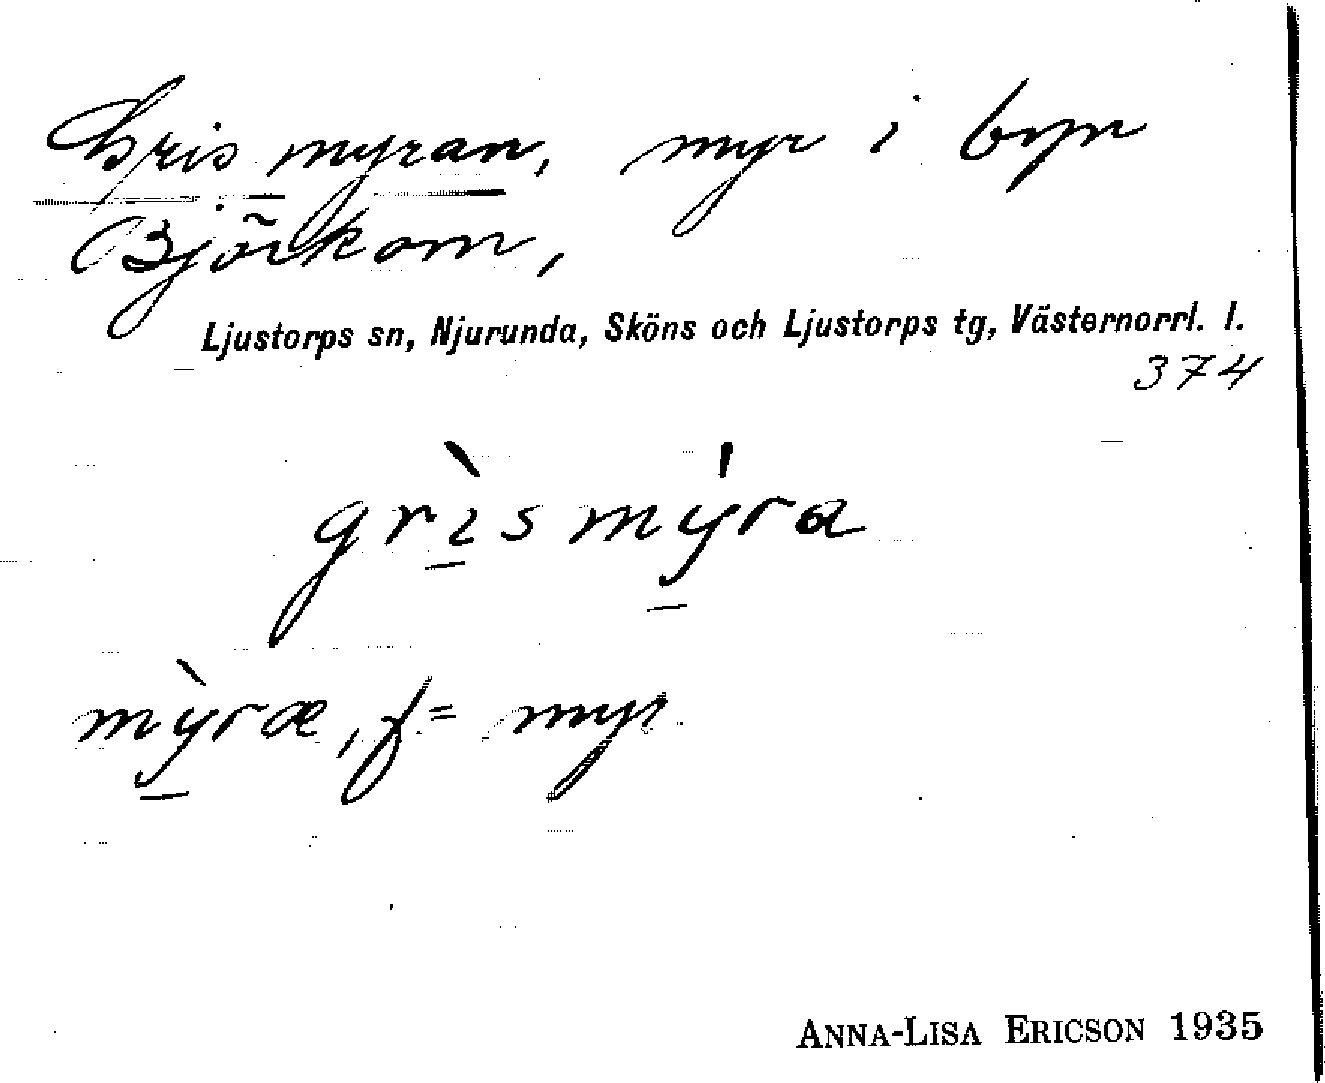 Grismyran, myr i byn
Björkom,
Ljustorps sn, Njurunda, Sköns och Ljustorps tg, Västernorrl. l.
374
grı̀smýra
mỳræ, f = myr
ANNA-LISA ERICSON 1935